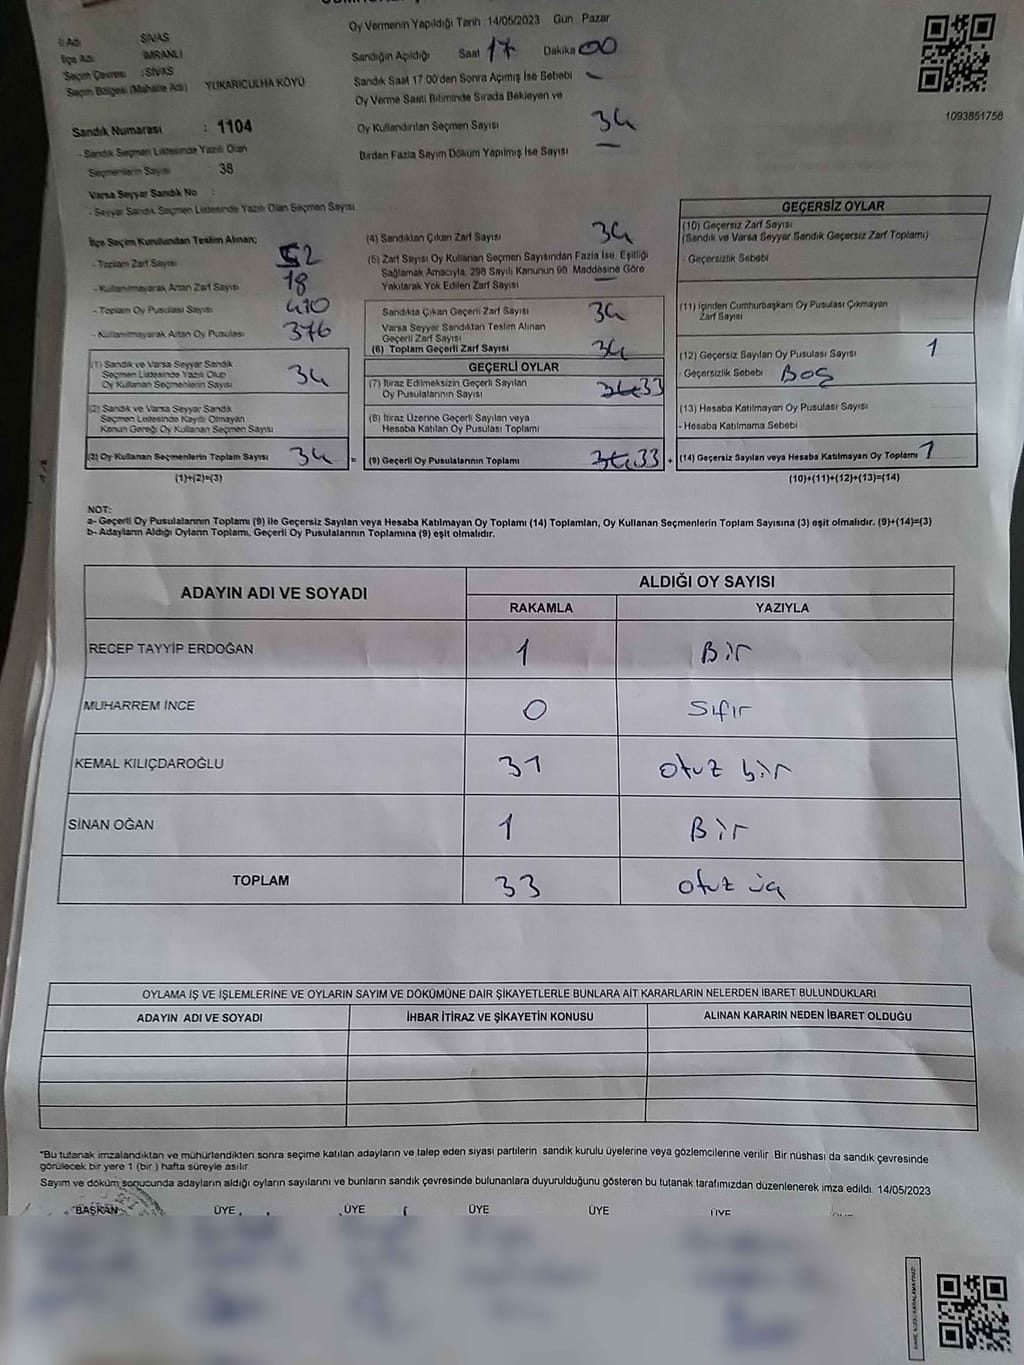 Oy Vermenin Yapıldığı Tarih 14/05/2023 Gün Pazar
İl Adı SİVAS
İlçe Adı İMRANLI
Seçim Çevresi :SİVAS
Seçim Bölgesi (Mahalle Adı) YUKARIÇULHA KÖYÜ
Sandığın Açıldığı Saat 17 Dakika 00
Sandık Saat 17:00'den Sonra Açılmış İse Sebebi -
Oy Verme Saati Bitiminde Sırada Bekleyen ve
Oy Kullandırılan Seçmen Sayısı 34
Birden Fazla Sayım Döküm Yapılmış İse Sayısı —
1093851758
Sandık Numarası : 1104
- Sandık Seçmen Listesinde Yazılı Olan
Seçmenlerin Sayısı : 38
Varsa Seyyar Sandık No :
- Seyyar Sandık Seçmen Listesinde Yazılı Olan Seçmen Sayısı
İlçe Seçim Kurulundan Teslim Alınan;
- Toplam Zarf Sayısı 52
- Kullanılmayarak Artan Zarf Sayısı 18
- Toplam Oy Pusulası Sayısı 410
- Kullanılmayarak Artan Oy Pusulası 376
(1) Sandık ve Varsa Seyyar Sandık
Seçmen Listesinde Yazılı Olup
Oy Kullanan Seçmenlerin Sayısı 34
(2) Sandık ve Varsa Seyyar Sandık
Seçmen Listesinde Kayıtlı Olmayan
Kanun Gereği Oy Kullanan Seçmen Sayısı
(3) Oy Kullanan Seçmenlerin Toplam Sayısı 34 =
(1)+(2)=(3)
(4) Sandıktan Çıkan Zarf Sayısı 34
(5) Zarf Sayısı Oy Kullanan Seçmen Sayısından Fazla İse, Eşitliği
Sağlamak Amacıyla, 298 Sayılı Kanunun 98. Maddesine Göre
Yakılarak Yok Edilen Zarf Sayısı —
Sandıkta Çıkan Geçerli Zarf Sayısı 34
Varsa Seyyar Sandıktan Teslim Alınan
Geçerli Zarf Sayısı
(6) Toplam Geçerli Zarf Sayısı 34
GEÇERLİ OYLAR
(7) İtiraz Edilmeksizin Geçerli Sayılan
Oy Pusulalarının Sayısı 34 33
(8) İtiraz Üzerine Geçerli Sayılan veya
Hesaba Katılan Oy Pusulası Toplamı
(9) Geçerli Oy Pusulalarının Toplamı 34 33 +
GEÇERSİZ OYLAR
(10) Geçersiz Zarf Sayısı
(Sandık ve Varsa Seyyar Sandık Geçersiz Zarf Toplamı)
- Geçersizlik Sebebi
(11) İçinden Cumhurbaşkanı Oy Pusulası Çıkmayan
Zarf Sayısı
(12) Geçersiz Sayılan Oy Pusulası Sayısı 1
- Geçersizlik Sebebi Boş
(13) Hesaba Katılmayan Oy Pusulası Sayısı
- Hesaba Katılmama Sebebi
(14) Geçersiz Sayılan veya Hesaba Katılmayan Oy Toplamı 1
(10)+(11)+(12)+(13)=(14)
NOT:
a- Geçerli Oy Pusulalarının Toplamı (9) ile Geçersiz Sayılan veya Hesaba Katılmayan Oy Toplamı (14) Toplamları, Oy Kullanan Seçmenlerin Toplam Sayısına (3) eşit olmalıdır. (9)+(14)=(3)
b- Adayların Aldığı Oyların Toplamı, Geçerli Oy Pusulalarının Toplamına (9) eşit olmalıdır.
ADAYIN ADI VE SOYADI ALDIĞI OY SAYISI
RAKAMLA YAZIYLA
RECEP TAYYİP ERDOĞAN 1 Bir
MUHARREM İNCE 0 Sıfır
KEMAL KILIÇDAROĞLU 31 otuz bir
SİNAN OĞAN 1 Bir
TOPLAM 33 otuz üç
OYLAMA İŞ VE İŞLEMLERİNE VE OYLARIN SAYIM VE DÖKÜMÜNE DAİR ŞİKAYETLERLE BUNLARA AİT KARARLARIN NELERDEN İBARET BULUNDUKLARI
ADAYIN ADI VE SOYADI İHBAR İTİRAZ VE ŞİKAYETİN KONUSU ALINAN KARARIN NEDEN İBARET OLDUĞU
*Bu tutanak imzalandıktan ve mühürlendikten sonra seçime katılan adayların ve talep eden siyasi partilerin sandık kurulu üyelerine veya gözlemcilerine verilir. Bir nüshası da sandık çevresinde
görülecek bir yere 1 (bir ) hafta süreyle asılır.
Sayım ve döküm sonucunda adayların aldığı oyların sayılarını ve bunların sandık çevresinde bulunanlara duyurulduğunu gösteren bu tutanak tarafımızdan düzenlenerek imza edildi. 14/05/2023
BAŞKAN ÜYE ÜYE ÜYE ÜYE ÜYE